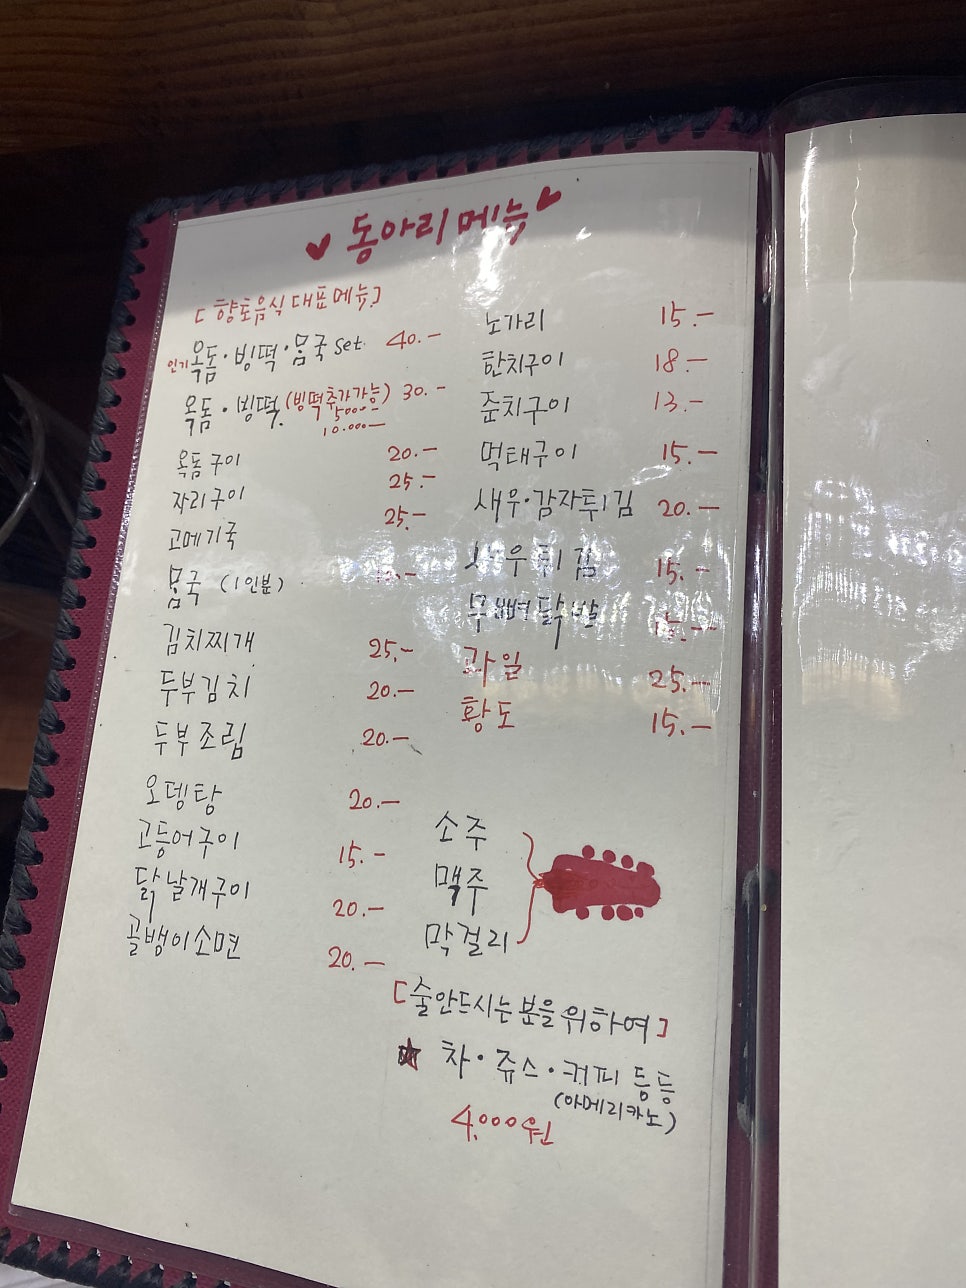 동아리 메뉴
[향토음식 대표메뉴]
인기 옥돔·빙떡·몸국 set 40.-
옥돔·빙떡 (빙떡추가가능) 30.-
5000-
10.000-
옥돔구이 20.-
자리구이 25.-
고메기국 25.-
몸국 (1인분)
김치찌개 25.-
두부김치 20.-
두부조림 20.-
오뎅탕 20.-
고등어구이 15.-
닭날개구이 20.-
골뱅이소면 20.-
노가리 15.-
한치구이 18.-
준치구이 13.-
먹태구이 15.-
새우·감자튀김 20.-
새우튀김 15.-
무뼈닭발
과일 25.-
황도 15.-
소주
맥주
막걸리
[술안드시는분을위하여]
차·쥬스·커피 등등
(아메리카노)
4.000원